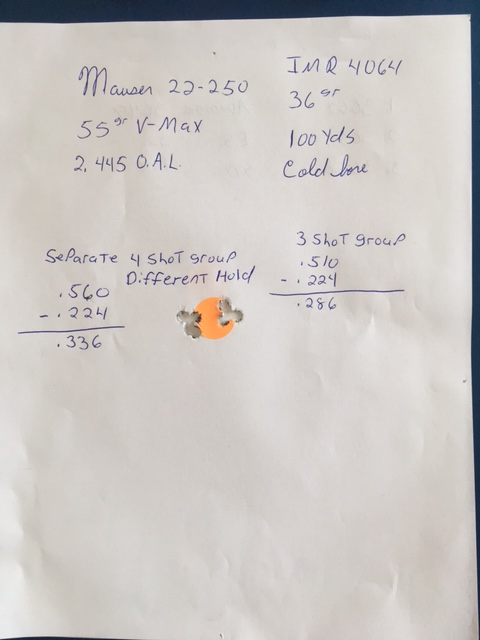 Mauser 22-250
55 gr V-Max
2.445 O.A.L.
IMR 4064
36 gr
100 Yds
Cold bore
Separate 4 Shot group
Different Hold
.560
- .224
.336
3 Shot group
.510
- .224
.286